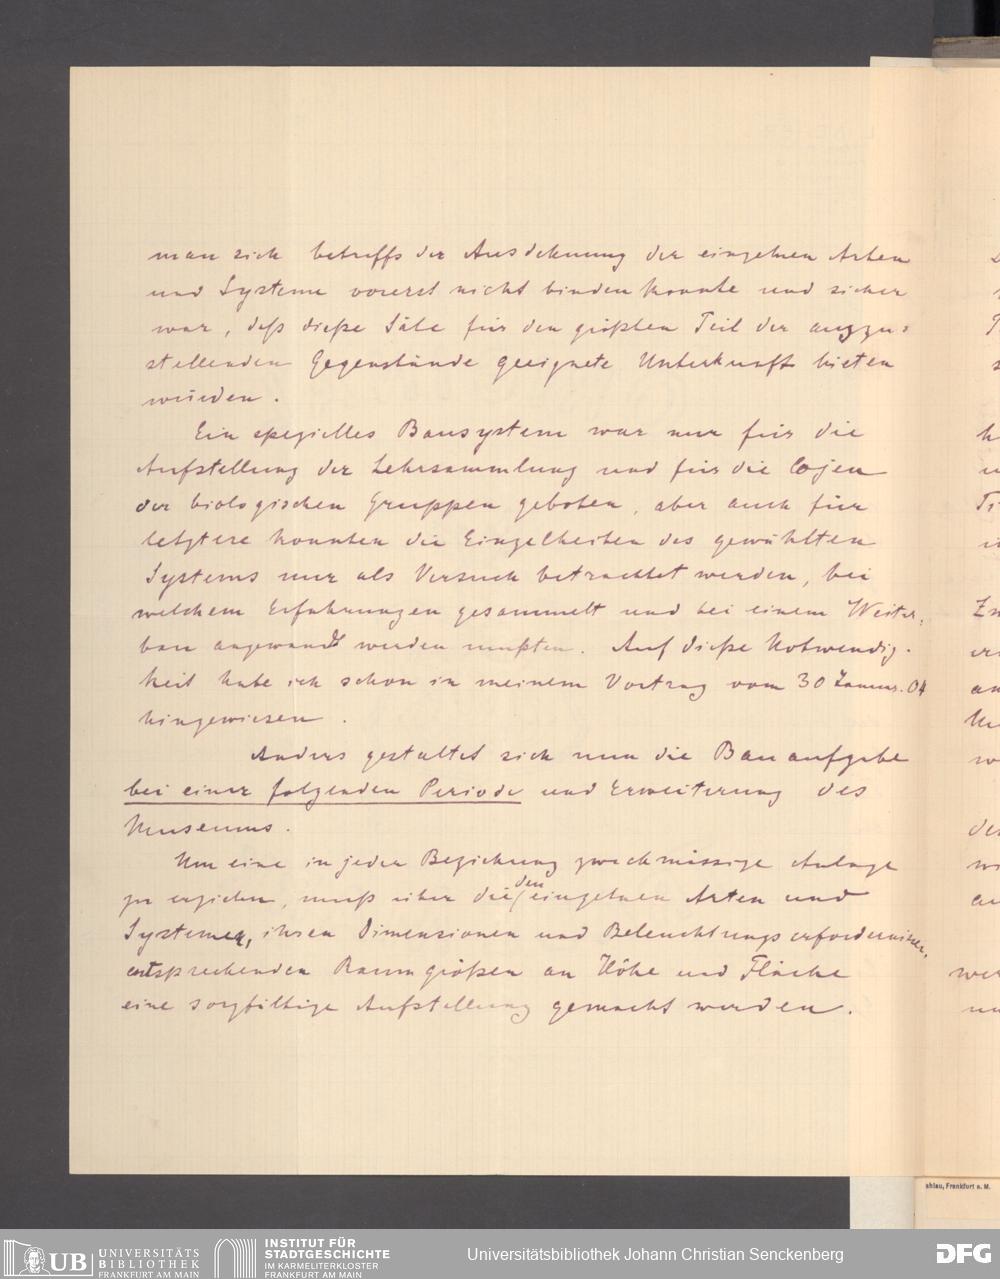 man sich betreffs der Ausdehnung der einzelnen Arten
und Systeme vorerst nicht binden konnte und sicher
war, daß dieße Säle für den größten Teil der auszu-
stellenden Gegenstände geeignete Unterkunft bieten
würden.
Ein spezielles Bausystem war nur für die
Aufstellung der Lehrsammlung und für die Cojen
der biologischen Gruppen geboten, aber auch für
letztere konnten die Einzelheiten des gewählten
Systems nur als Versuch betrachtet werden, bei
welchem Erfahrungen gesammelt und bei einem Weiter-
bau angewandt werden mußten. Auf dieße Notwendig-
keit habe ich schon in meinem Vortrag vom 30 Januar. 04
hingewiesen.
Anders gestaltet sich nun die Bauaufgabe
bei einer folgenden Periode und Erweiterung des
Museums.
Um eine in jeder Beziehung zweckmässige Anlage
zu erzielen, muß über die den einzelnen Arten und
Systemen, ihren Dimensionen und Beleuchtungserfordernissen,
entsprechenden Raumgrößen an Höhe und Fläche
eine sorgfältige Aufstellung gemacht werden.
ahlau, Frankfurt a. M.
UB UNIVERSITÄTS
BIBLIOTHEK
FRANKFURT AM MAIN
INSTITUT FÜR
STADTGESCHICHTE
IM KARMELITERKLOSTER
FRANKFURT AM MAIN
Universitätsbibliothek Johann Christian Senckenberg
DFG